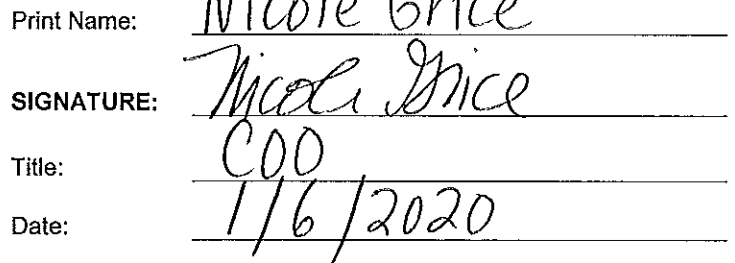 Print Name: Nicole Grice
SIGNATURE: Nicole Grice
Title: COO
Date: 1/6/2020